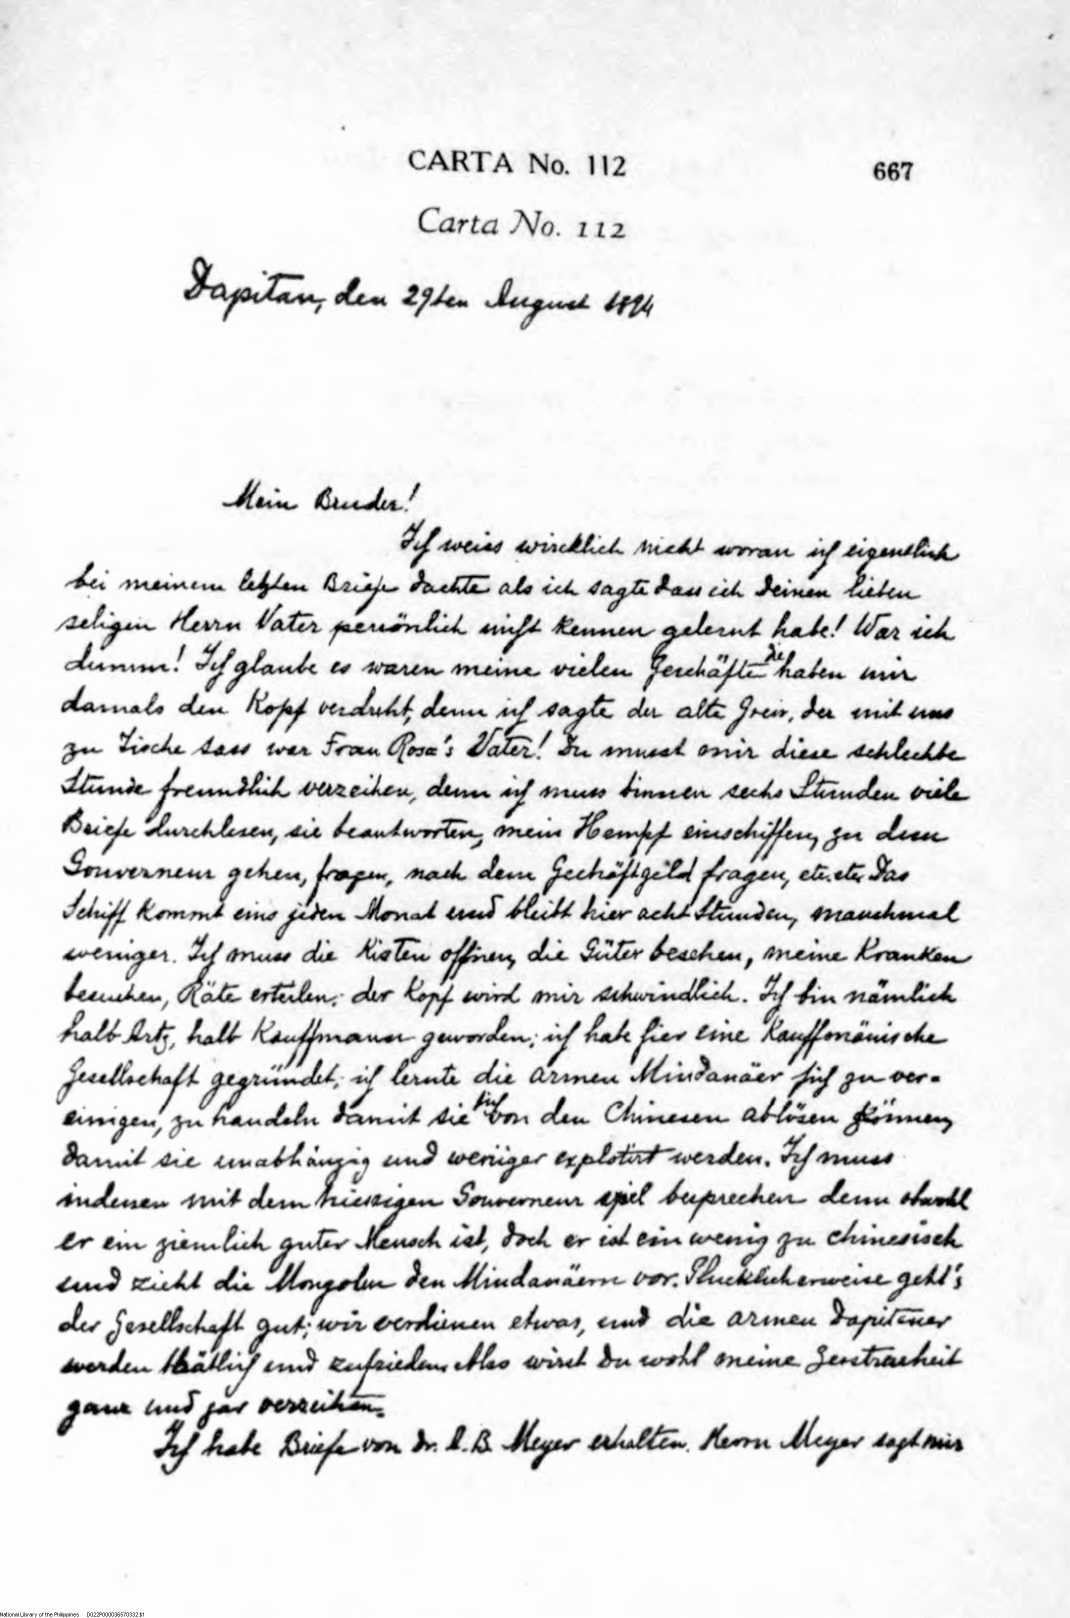 CARTA No. 112
667
Carta No. 112
Dapitan, den 29ten August 1894
Mein Bruder!
Ich weiss wircklich nicht woran ich eigentlich
bei meinem letzten Briefe dachte als ich sagte dass ich Deinen lieben
seligen Herrn Vater persönlich nicht kennen gelernt habe! War ich
dumm! Ich glaube es waren meine vielen Geschäfte die haben mir
damals den Kopf verdreht, denn ich sagte der alte Greis, der mit uns
zu Tische sass war Frau Rosa's Vater! Du musst mir diese schlechte
Stunde freundlich verzeihen, denn ich muss binnen sechs Stunden viele
Briefe durchlesen, sie beantworten, mein Hempf einschiffen, zu dem
Gouverneur gehen, fragen, nach dem Geschäftgeld fragen, etc. etc. Das
Schiff kommt eins jeden Monat und bleibt hier acht Stunden, manchmal
weniger. Ich muss die Kisten offnen, die Güter besehen, meine Kranken
besuchen, Räte erteilen; der Kopf wird mir schwindlich. Ich bin nämlich
halb Artz, halb Kauffmann geworden; ich habe hier eine Kauffmänische
Gesellschaft gegründet; ich lernte die armen Mindanäer sich zu ver-
einigen, zu handeln damit sie sich von den Chinesen ablösen können,
damit sie unabhängig und weniger explotirt werden. Ich muss
indessen mit dem hiessigen Gouverneur viel besprechen denn obwohl
er ein ziemlich guter Mensch ist, doch er ist ein wenig zu chinesisch
und zieht die Mongolen den Mindanäern vor. Glucklicherweise geht's
der Gesellschaft gut; wir verdienen etwas, und die armen Dapitener
werden thätlich und zufrieden. Also wirst Du wohl meine Zerstreuheit
ganz und gar verzeihen.
Ich habe Briefe von Dr. A. B. Meyer erhalten. Herrn Meyer sagt mir
National Library of the Philippines